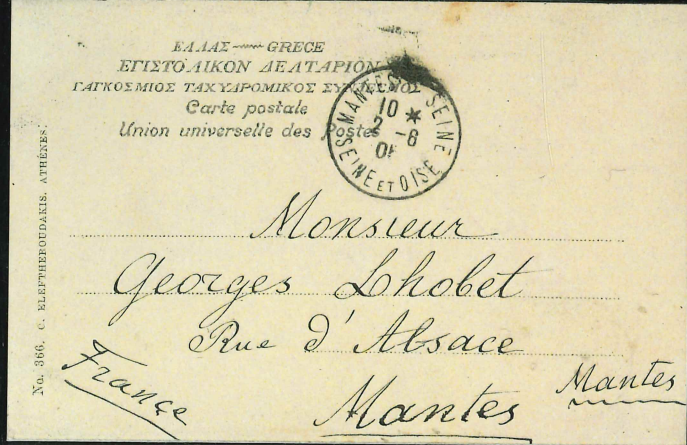 ΕΛΛΑΣ — GRECE
ΕΠΙΣΤΟΛΙΚΟΝ ΔΕΛΤΑΡΙΟΝ
ΠΑΓΚΟΣΜΙΟΣ ΤΑΧΥΔΡΟΜΙΚΟΣ ΣΥΝΔΕΣΜΟΣ
Carte postale
Union universelle des Postes
MANTES S SEINE
10 *
2 - 6
SEINE ET OISE
Monsieur
Georges Lhobet
Rue d'Alsace
Mantes
Mantes
France
No. 366. C. ELEFTHEROUDAKIS. ATHÈNES.